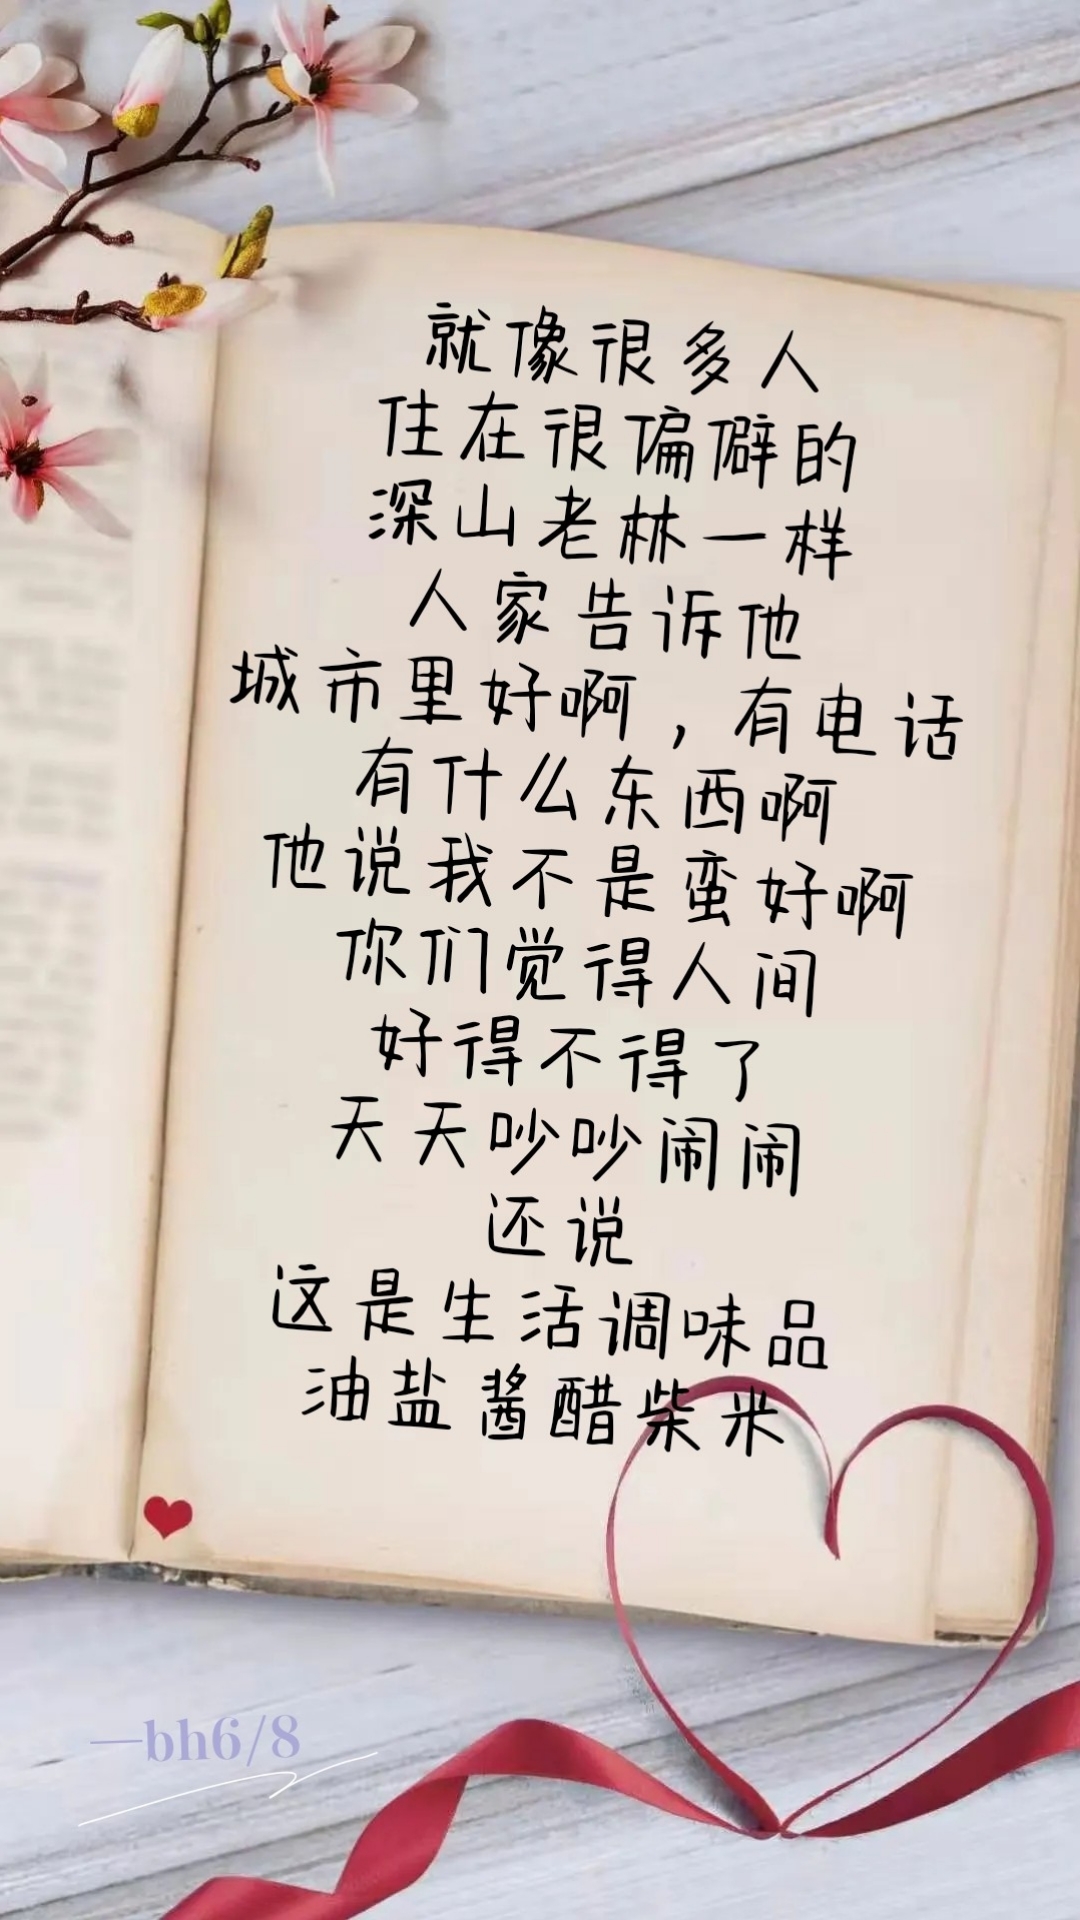 就像很多人
住在很偏僻的
深山老林一样
人家告诉他
城市里好啊，有电话
有什么东西啊
他说我不是蛮好啊
你们觉得人间
好得不得了
天天吵吵闹闹
还说
这是生活调味品
油盐酱醋柴米
—bh6/8